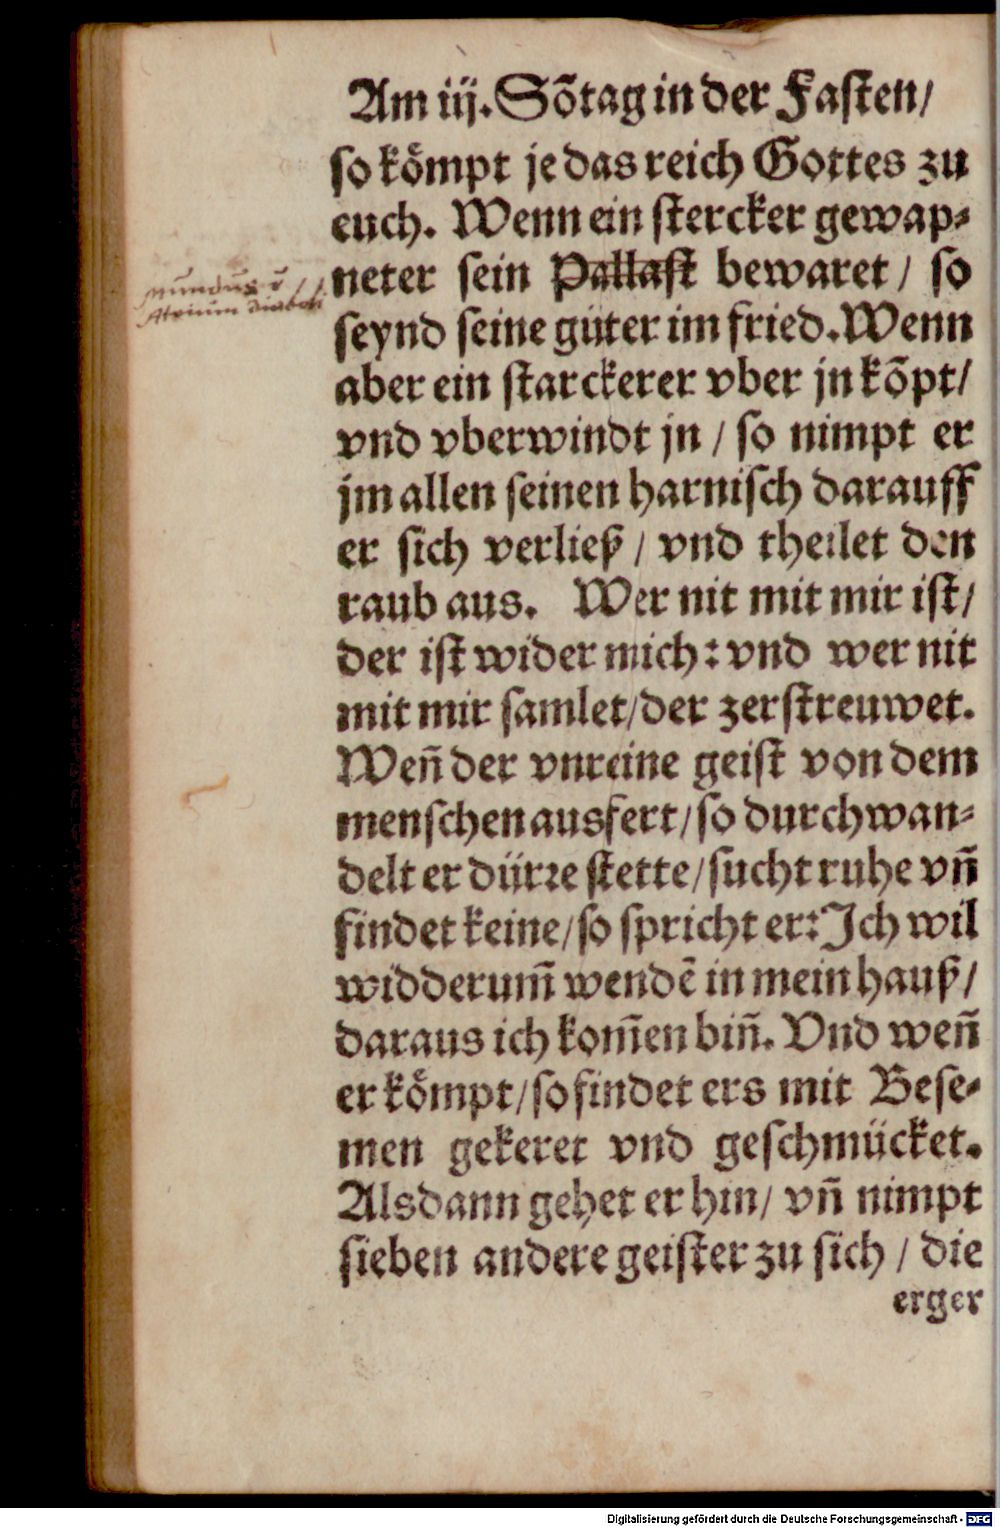 Am iij. Sõtag in der Fasten/
so kömpt je das reich Gottes zu
euch. Wenn ein stercker gewap⸗
neter sein Pallast bewaret / so
seynd seine güter im fried. Wenn
aber ein starckerer vber jn kõpt/
vnd vberwindt jn / so nimpt er
jm allen seinen harnisch darauff
er sich verließ / vnd theilet den
raub aus. Wer nit mit mir ist/
der ist wider mich: vnd wer nit
mit mir samlet/der zerstreuwet.
Weñ der vnreine geist von dem
menschen ausfert/so durchwan⸗
delt er dürre stette/sucht ruhe vñ
findet keine/so spricht er: Ich wil
widderum̃ wendẽ in mein hauß/
daraus ich kom̃en biñ. Vnd weñ
er kömpt/so findet ers mit Bese⸗
men gekeret vnd geschmücket.
Alsdann gehet er hin/ vñ nimpt
sieben andere geister zu sich / die
erger
mundus
Atrium diaboli
Digitalisierung gefördert durch die Deutsche Forschungsgemeinschaft - DFG